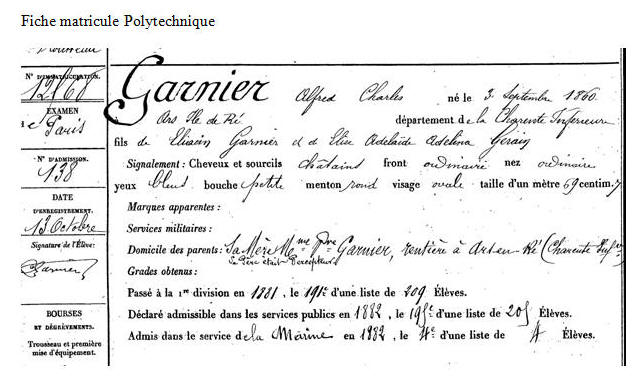 Fiche matricule Polytechnique
N° D'IMMATRICULATION.
12168
EXAMEN
de Paris
N° D'ADMISSION.
138
DATE
D'ENREGISTREMENT.
13 Octobre
Signature de l'Élève:
Garnier
BOURSES
ET DÉGRÈVEMENTS.
Trousseau et première
mise d'équipement.
Garnier Alfred Charles né le 3 Septembre 1860
Ars Ile de Ré département de la Charente Inférieure
fils de Garnier et d Elise Adélaïde Adelina
Signalement: Cheveux et sourcils châtains front ordinaire nez ordinaire
yeux bleus bouche petite menton rond visage ovale taille d'un mètre 69 centim.
Marques apparentes:
Services militaires:
Domicile des parents: Sa Mère Mme Vve Garnier, rentière à Ars-en-Ré (Charente Infre)
Le Père était Percepteur
Grades obtenus:
Passé à la 1re division en 1881, le 191e d'une liste de 209 Élèves.
Déclaré admissible dans les services publics en 1882, le d'une liste de Élèves.
Admis dans le service de la Marine en 1882, le 4e d'une liste de 4 Élèves.